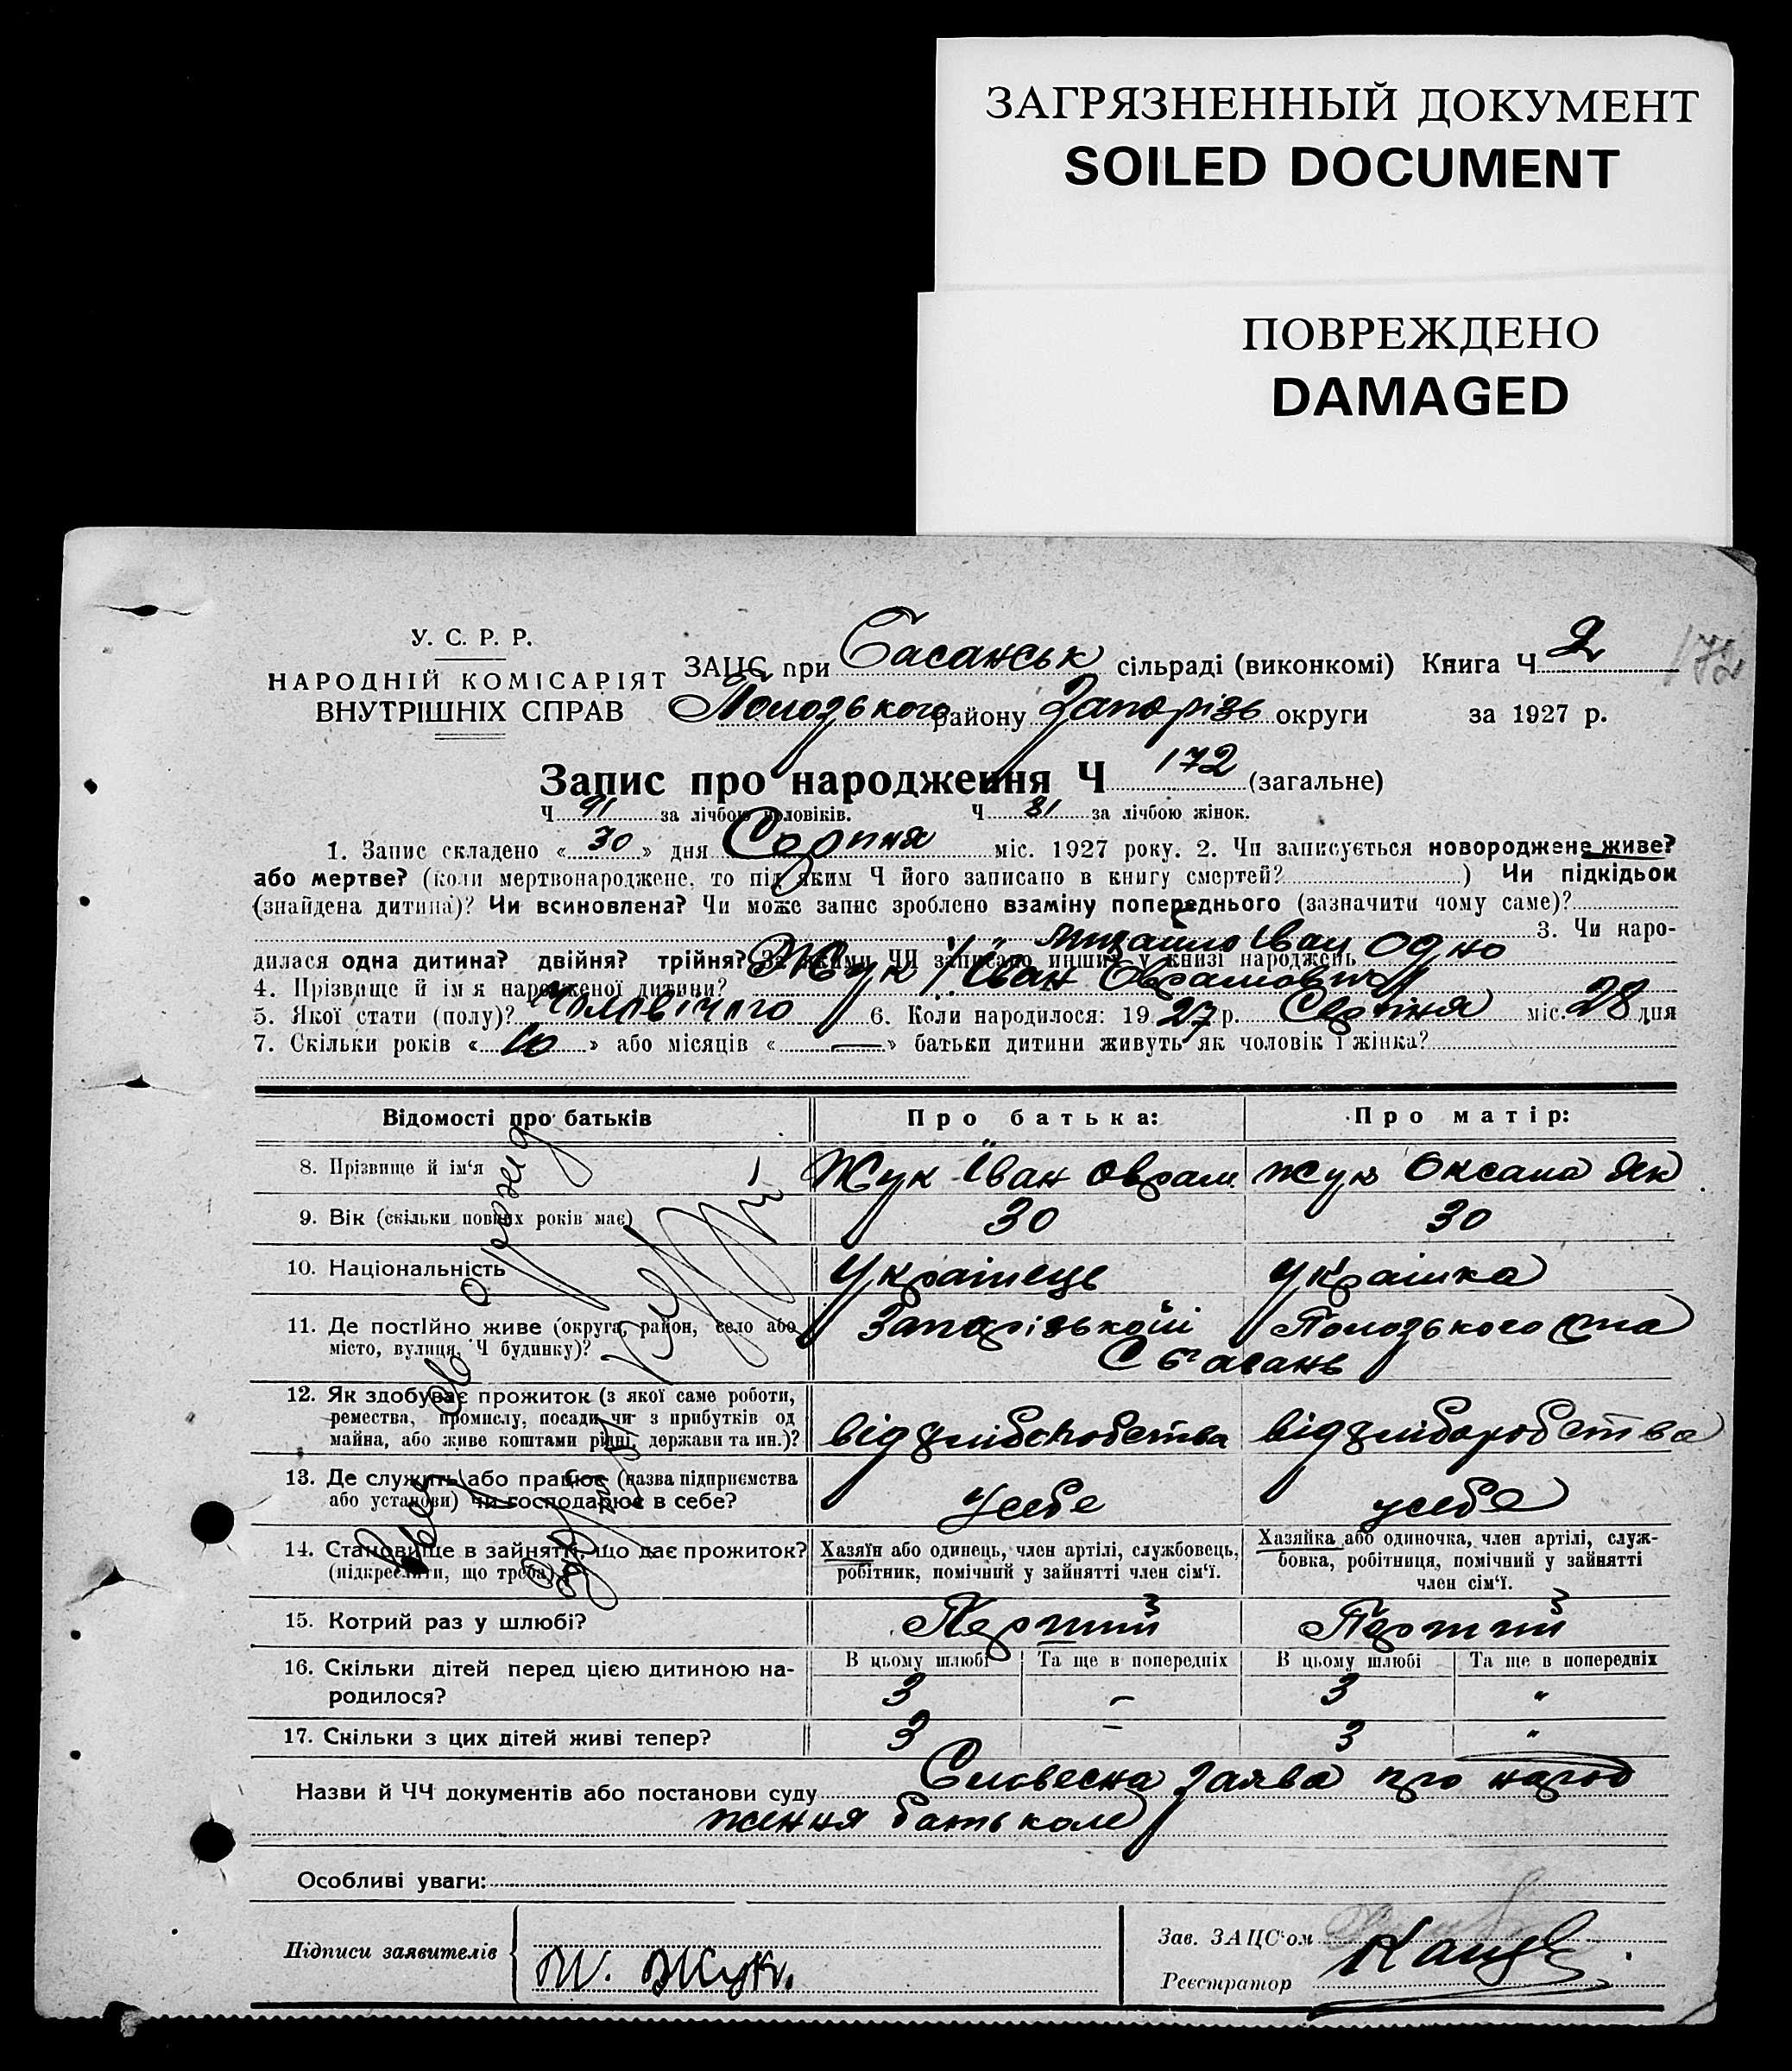 ЗАГРЯЗНЕННЫЙ ДОКУМЕНТ
SOILED DOCUMENT
ПОВРЕЖДЕНО
DAMAGED
172
У. С. Р. Р.
НАРОДНІЙ КОМІСАРІЯТ
ВНУТРІШНІХ СПРАВ
ЗАЦС при Басанськ сільраді (виконкомі) Книга Ч 2
Пологзького району Запорізь округи за 1927 р.
Запис про народження Ч 172 (загальне)
Ч 91 за лічбою чоловіків. Ч 81 за лічбою жінок.
1. Запис складено «30» дня Серпня міс. 1927 року. 2. Чи записується новороджене живе?
або мертве? (коли мертвонароджене, то під яким Ч його записано в книгу смертей?) Чи підкідьок
(знайдена дитина)? Чи всиновлена? Чи може запис зроблено взаміну попереднього (зазначити чому саме)?
3. Чи наро-
дилася одна дитина? двійня? трійня? За якими ЧЧ записано инших у книзі народжень Одно
Михайло Іван
4. Прізвище й ім'я народженої дитини? Жук Іван Оврамович
5. Якої стати (полу)? Чоловічого 6. Коли народилося: 1927 р. Серпня міс. 28 дня
7. Скільки років «10» або місяців «—» батьки дитини живуть як чоловік і жінка?
Відомості про батьків Про батька: Про матір:
8. Прізвище й ім'я Жук Іван Оврам Жук Оксана Як
9. Вік (скільки повних років має) 30 30
10. Національність Українець Українка
11. Де постійно живе (округа, район, село або Запорізькоїи Пологзького
місто, вулиця, Ч будинку)? С Басань
12. Як здобуває прожиток (з якої саме роботи,
ремества, промислу, посади чи з прибутків од
майна, або живе коштами рідні, держави та ин.)? від хліборобства від хліборобства
13. Де служить або працює (назва підприємства
або установи) чи господарює в себе? усебе усебе
14. Становище в зайнятті, що дає прожиток?
(підкреслити, що треба)
Хазяїн або одинець, член артілі, службовець,
робітник, помічний у зайнятті член сім'ї.
Хазяйка або одиночка, член артілі, служ-
бовка, робітниця, помічний у зайнятті
член сім'ї.
15. Котрий раз у шлюбі? Перший Перший
В цьому шлюбі Та ще в попередніх В цьому шлюбі Та ще в попередніх
16. Скільки дітей перед цією дитиною на-
родилося? 3 – 3 "
17. Скільки з цих дітей живі тепер? 3 – 3 "
Назви й ЧЧ документів або постанови суду Словесна заява про народ
ження батьком
Особливі уваги:
Підписи заявителів Жук.
Зав. ЗАЦС'ом
Реєстратор